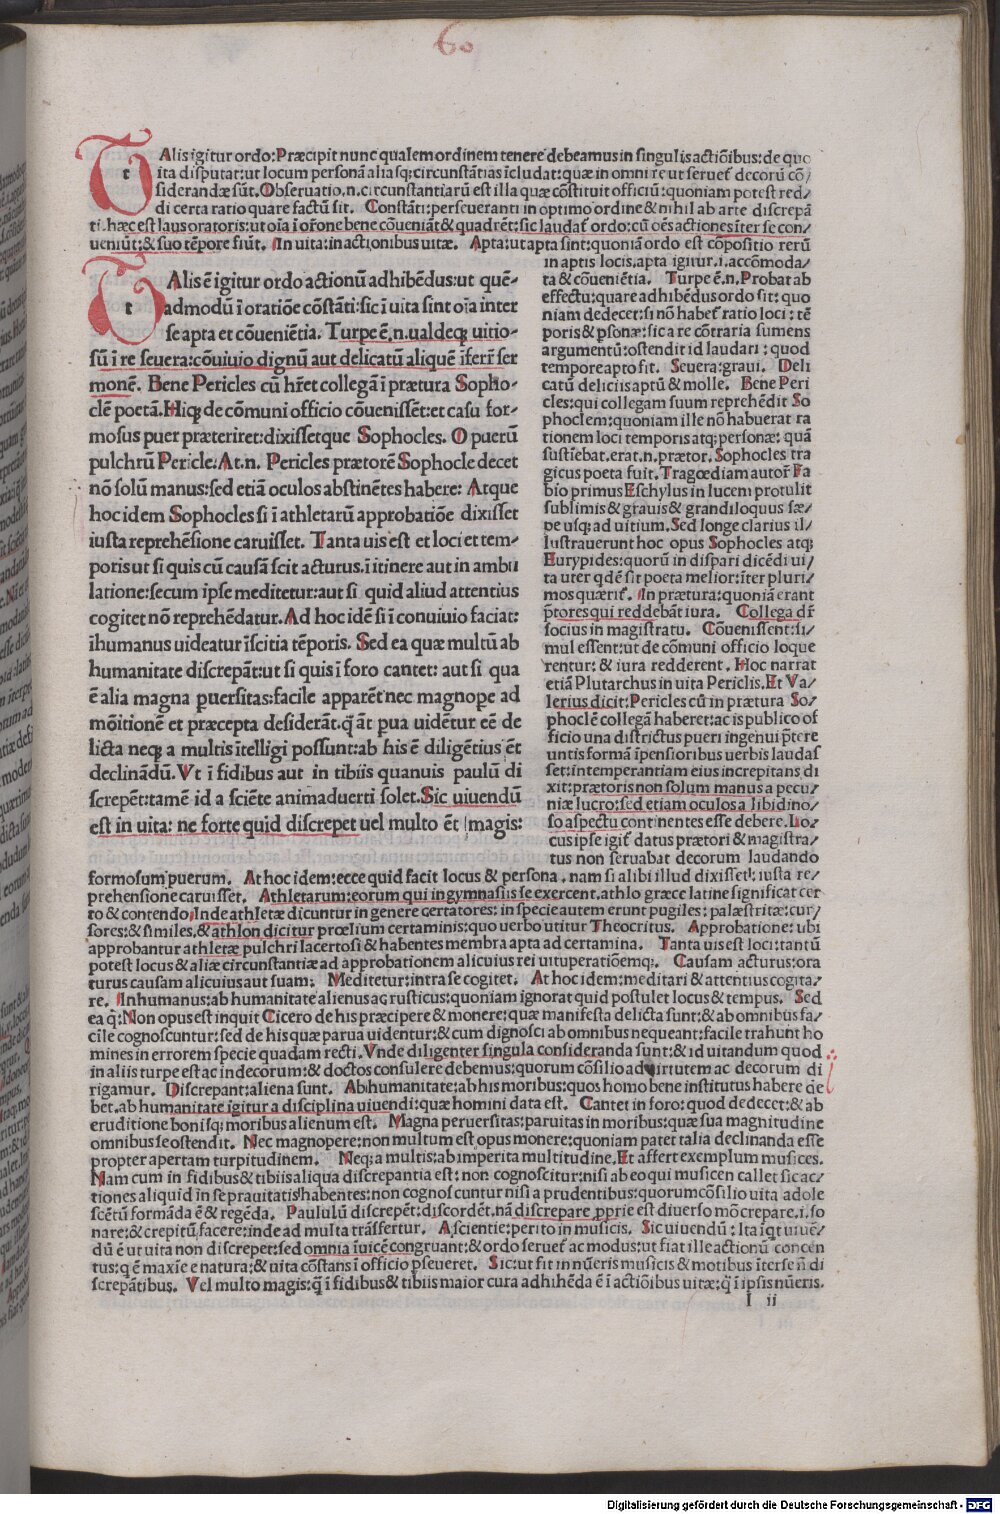 60
TAlis igitur ordo: Præcipit nunc qualem ordinem tenere debeamus in singulis actiõibus: de quo
ita disputat: ut locum personã aliasq; circunstãtias ĩcludat: quæ in omni re ut seruet᷑ decorũ cõ/
siderandæ sũt. Obseruatio.n.circunstantiarũ est illa quæ cõstituit officiũ: quoniam potest red/
di certa ratio quare factũ sit. Constãti: perseueranti in optimo ordine & nihil ab arte discrepã
ti. hæc est laus oratoris: ut oĩa ĩ oȓone bene cõueniãt & quadrẽt: sic laudat᷑ ordo: cũ oẽs actiones ĩter se con/
ueniũt: & suo tẽpore fiũt. In uita: in actionibus uitæ. Apta: ut apta sint: quoniã ordo est cõpositio rerũ
in aptis locis. apta igitur.i.accõmoda/
ta & cõueniẽtia. Turpe ẽ.n. Probat ab
effectu: quare adhibẽdus ordo sit: quo
niam dedecet: si nõ habet᷑ ratio loci: tẽ
poris & p̃sonæ: sic a re cõtraria sumens
argumentũ: ostendit id laudari: quod
tempore apto fit. Seuera: graui. Deli
catũ deliciis aptũ & molle. Bene Peri
cles: qui collegam suum reprehẽdit So
phoclem: quoniam ille nõ habuerat ra
tionem loci temporis atq; personæ: quã
sustiẽbat. erat.n. prætor. Sophocles tra
gicus poeta fuit. Tragœdiam autor᷑ Fa
bio primus Eschylus in lucem protulit
sublimis & grauis & grandiloquus sæ/
pe usq; ad uitium. Sed longe clarius il/
lustrauerunt hoc opus Sophocles atq;
Eurypides: quorũ in dispari dicẽdi ui/
ta uter qdẽ sit poeta melior: ĩter pluri/
mos quærit᷑. In prætura: quoniã erant
p̃tores qui reddebãt iura. Collega dȓ
socius in magistratu. Cõuenissent: si/
mul essent: ut de cõmuni officio loque
rentur: & iura redderent. Hoc narrat
etiã Plutarchus in uita Periclis. Et Va/
lerius dicit: Pericles cũ in prætura So/
phoclẽ collegã haberet: ac is publico of
ficio una districtus pueri ingenui p̃tere
untis formã ĩpensioribus uerbis laudas
set: intemperantiam eius increpitans di
xit: prætoris non solum manus a pecu/
niæ lucro: sed etiam oculos a libidino/
so aspectu continentes esse debere. Lo/
cus ipse igit᷑ datus prætori & magistra/
tus non seruabat decorum laudando
TAlis ẽ igitur ordo actionũ adhibẽdus: ut quẽ-
admodũ ĩ oratiõe cõstãti: sic ĩ uita sint oĩa inter
se apta et cõueniẽtia. Turpe ẽ.n. ualdeq; uitio-
sũ ĩ re seuera: cõuiuio dignũ aut delicatũ aliquẽ ĩferȓ ser
monẽ. Bene Pericles cũ hȓet collegã ĩ prætura Sopho-
clẽ poetã. Hiq; de cõmuni officio cõuenissẽt: et casu for-
mosus puer præteriret: dixissetque Sophocles. O puerũ
pulchrũ Pericle: At.n. Pericles prætorẽ Sophocle decet
nõ solũ manus: sed etiã oculos abstinẽtes habere: Atque
hoc idem Sophocles si ĩ athletarũ approbatiõe dixisset
iusta reprehẽsione caruisset. Tanta uis est et loci et tem-
poris ut si quis cũ causã scit acturus. ĩ itinere aut in ambu
latione: secum ipse meditetur: aut si quid aliud attentius
cogitet nõ reprehẽdatur. Ad hoc idẽ si ĩ conuiuio faciat:
ĩhumanus uideatur ĩscitia tẽporis. Sed ea quæ multũ ab
humanitate discrepãt: ut si quis ĩ foro cantet: aut si qua
ẽ alia magna puersitas: facile apparẽt nec magnope ad
mõitionẽ et præcepta desiderãt. q̃ ãt pua uidẽtur eẽ de
licta neq; a multis ĩtelligi possunt: ab his ẽ diligẽtius ẽt
declinãdũ. Vt ĩ fidibus aut in tibiis quanuis paulũ di
screpẽt: tamẽ id a sciẽte animaduerti solet. Sic uiuendũ
est in uita: ne forte quid discrepet uel multo ẽt magis:
formosum puerum. At hoc idem: ecce quid facit locus & persona. nam si alibi illud dixisset: iusta re/
prehensione caruisset. Athletarum: eorum qui in gymnasiis se exercent. athlo græce latine significat cer
to & contendo. Inde athletæ dicuntur in genere certatores: in specie autem erunt pugiles: palæstritæ: cur/
sores: & similes. & athlon dicitur prœlium certaminis: quo uerbo utitur Theocritus. Approbatione: ubi
approbantur athletæ pulchri lacertosi & habentes membra apta ad certamina. Tanta uis est loci: tantũ
potest locus & aliæ circunstantiæ ad approbationem alicuius rei uituperatiõemq;. Causam acturus: ora
turus causam alicuius aut suam. Meditetur: intra se cogitet. At hoc idem: meditari & attentius cogita/
re. Inhumanus: ab humanitate alienus ac rusticus: quoniam ignorat quid postulet locus & tempus. Sed
ea q̃: Non opus est inquit Cicero de his præcipere & monere: quæ manifesta delicta sunt: & ab omnibus fa/
cile cognoscuntur: sed de his quæ parua uidentur: & cum dignosci ab omnibus nequeant: facile trahunt ho
mines in errorem specie quadam recti. Vnde diligenter singula consideranda sunt: & id uitandum quod
in aliis turpe est ac indecorum: & doctos consulere debemus: quorum cõsilio ad uirtutem ac decorum di
rigamur. Discrepant: aliena sunt. Ab humanitate: ab his moribus: quos homo bene institutus habere de
bet. ab humanitate igitur a disciplina uiuendi: quæ homini data est. Cantet in foro: quod dedecet: & ab
eruditione bonisq; moribus alienum est. Magna peruersitas: prauitas in moribus: quæ sua magnitudine
omnibus se ostendit. Nec magnopere: non multum est opus monere: quoniam patet talia declinanda esse
propter apertam turpitudinem. Neq; a multis: ab imperita multitudine. Et affert exemplum musices.
Nam cum in fidibus & tibiis aliqua discrepantia est: non cognoscitur: nisi ab eo qui musicen callet sic ac/
tiones aliquid in se prauitatis habentes: non cognoscuntur nisi a prudentibus: quorum cõsilio uita adole
scẽtũ formãda ẽ & regẽda. Paululũ discrepẽt: discordẽt. nã discrepare p̱prie est diuerso mõ crepare. i. so
nare: & crepitũ facere: inde ad multa trãsfertur. A sciente: perito in musicis. Sic uiuendũ: Ita iq̃t uiuẽ/
dũ ẽ ut uita non discrepet: sed omnia ĩuicẽ congruant: & ordo seruet᷑ ac modus: ut fiat ille actionũ concen
tus: q̃ maxĩe e natura: & uita cõstans ĩ officio p̱seueret. Sic: ut fit in nũeris musicis & motibus ĩter se ñ di
screpãtibus. Vel multo magis: q̃ ĩ fidibus & tibiis maior cura adhibẽda ẽ ĩ actiõibus uitæ: q̃ ĩ ipsis nũeris.
I ii
Digitalisierung gefördert durch die Deutsche Forschungsgemeinschaft - DFG